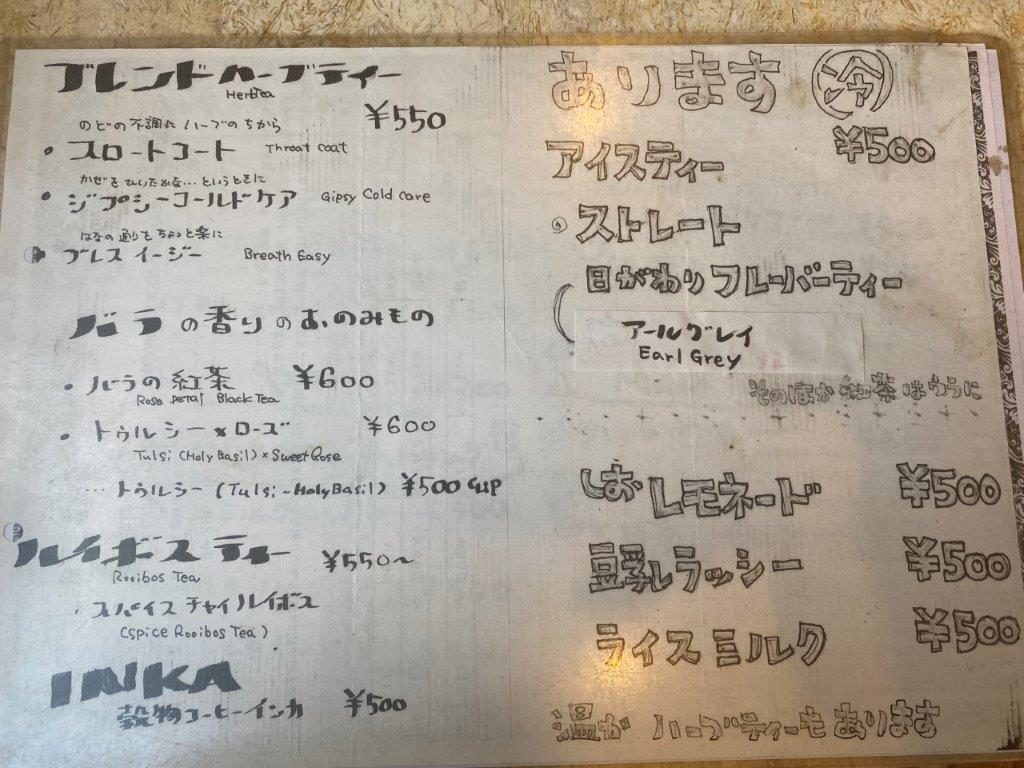 ブレンドハーブティー
Herbtea
¥550
のどの不調に ハーブのちから
・スロートコート Throat coat
かぜをひいたかな…というときに
・ジプシーコールドケア Gipsy Cold care
はなの通りもちょっと楽に
ブレスイージー Breath Easy
バラの香りのお、のみもの
・バラの紅茶 ¥600
Rose petal Black Tea
・トゥルシー×ローズ ¥600
Tulsi (Holy Basil) × Sweet Rose
…トゥルシー (Tulsi-Holy Basil) ¥500 cup
ルイボスティー ¥550~
Rooibos Tea
・スパイスチャイルイボス
(spice Rooibos Tea)
INKA
穀物コーヒーインカ ¥500
あります 冷
アイスティー ¥500
ストレート
日がわりフレーバーティー
アールグレイ
Earl Grey
そのほか紅茶はうらに
しおレモネード ¥500
豆乳ラッシー ¥500
ライスミルク ¥500
温か ハーブティーもあります